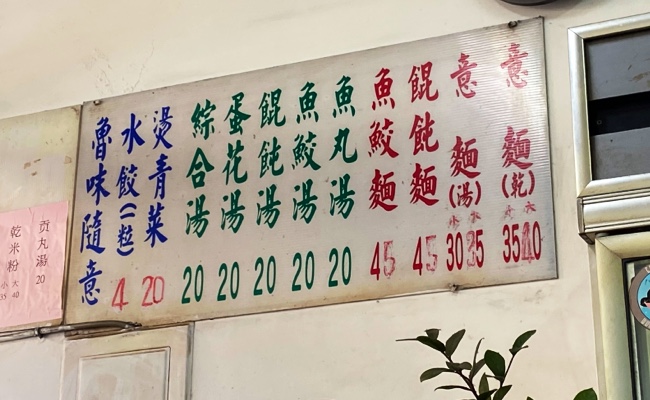 意麵(乾) 小35 大40
意麵(湯) 小30 大35
餛飩麵 45
魚鮫麵 45
魚丸湯 20
魚鮫湯 20
餛飩湯 20
蛋花湯 20
綜合湯 20
燙青菜 20
水餃(一粒) 4
魯味隨意
貢丸湯 20
乾米粉 小35 大40